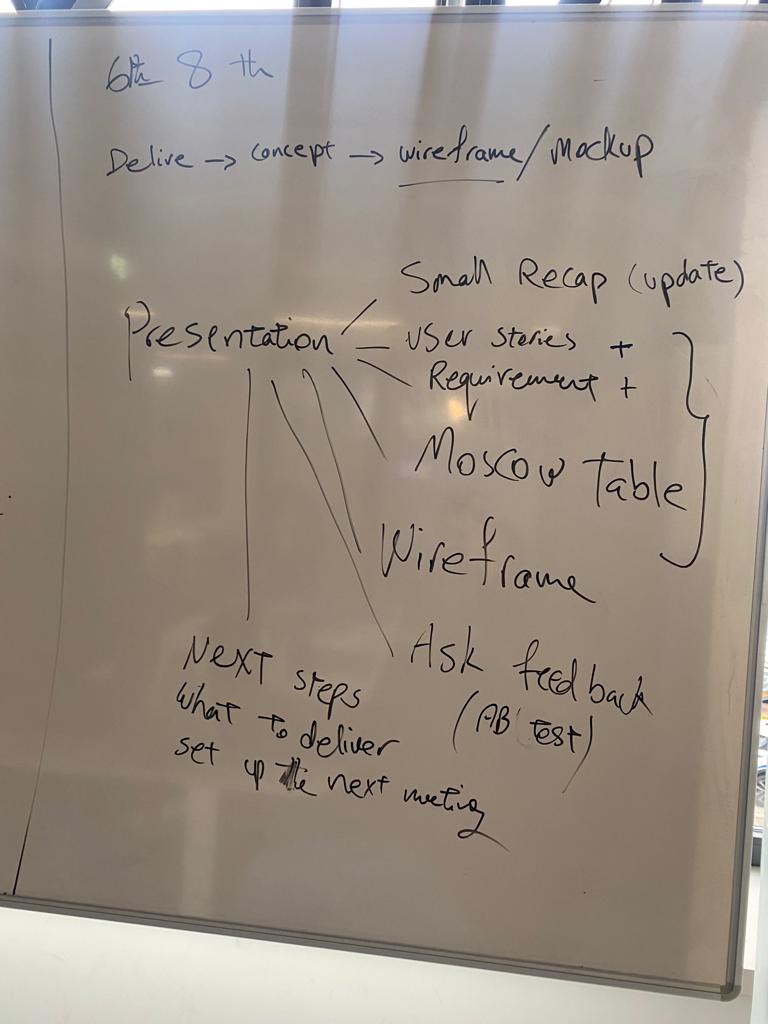 6th 8 th
Delive → concept → wireframe / Mockup
Small Recap (update)
Presentation
User stories +
Requirement +
Moscow Table
Wireframe
Ask feedback
(AB test)
Next steps
what to deliver
set up the next meeting